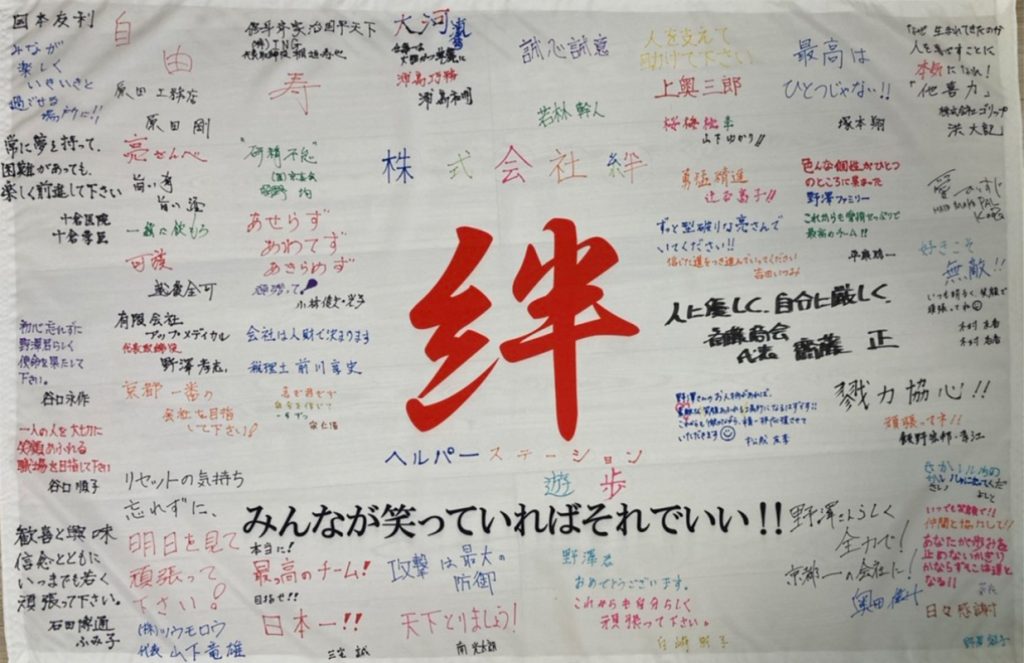 国本友利
みなが
楽しく
いきいきと
過ごせる
場所に!!
常に夢を持って、
困難があっても、
楽しく前進して下さい
十倉医院
十倉孝臣
初心忘れずに
野澤君らしく
使命を果たして
下さい。
谷口永作
一人の人を大切に
笑顔あふれる
職場を目指して下さい
谷口順子
歓喜と興味
信念とともに
いつまでも若く
頑張って下さい。
石田博通
ふみ子
自
由
原田工務店
原田 剛
亮さんへ
旨い酒
旨い酒
一緒に飲もう
可渡
有限会社
アップ・メディカル
代表取締役
野澤孝志
京都一番の
会社を目指
して下さい!
リセットの気持ち
忘れずに、
明日を見て
頑張って
下さい!
(株)ツウモロウ
代表 山下竜雄
修身斉家治国平天下
(株)ING
代表取締役
寿
"研精不怠"
あせらず
あわてず
あきらめず
頑張って!
小林俊文・光子
会社は人財で決まります
税理士 前川享史
大河
誠心誠意
若林幹人
株式会社絆
絆
ヘルパーステーション
遊歩
みんなが笑っていればそれでいい!!
本当に!
最っ高のチーム!
目指せ!!
日本一!!
三宅 誠
攻撃は最大の
防御
天下とりましょう!
野澤君
おめでとうございます。
これからも自分らしく
頑張って下さい。
人を支えて
助けて下さい
上奥三郎
桜梅桃李
山下ゆかり!!
勇猛精進
辻右高子!!
ずっと型破りな亮さんで
いてください!!
信じた道をつき進んでいってください
吉田いつみ
人に優しく、自分に厳しく、
斎藤商会
代表 齋藤 正
最高は
ひとつじゃない!!
塚本翔
色んな個性がひとつ
のところに集まった
野澤ファミリー
これからも愛情たっぷりで
最高のチーム!!
戮力協心!!
頑張って下!!
野澤さんのお人柄があれば、
いただきます
野澤さんらしく
全力で!
京都一の会社に!
「なぜ生まれてきたのか
人を幸すことに
本気になれ!
「他喜力」
株式会社ゴリップ
洪 大記
好きこそ
無敵!!
いつも明るく、笑顔で
頑張ってね
いつでも笑顔で!!
仲間と協力して!!
あなたが歩みを
止めないかぎり
かならずそこは道と
なる!!
日々感謝